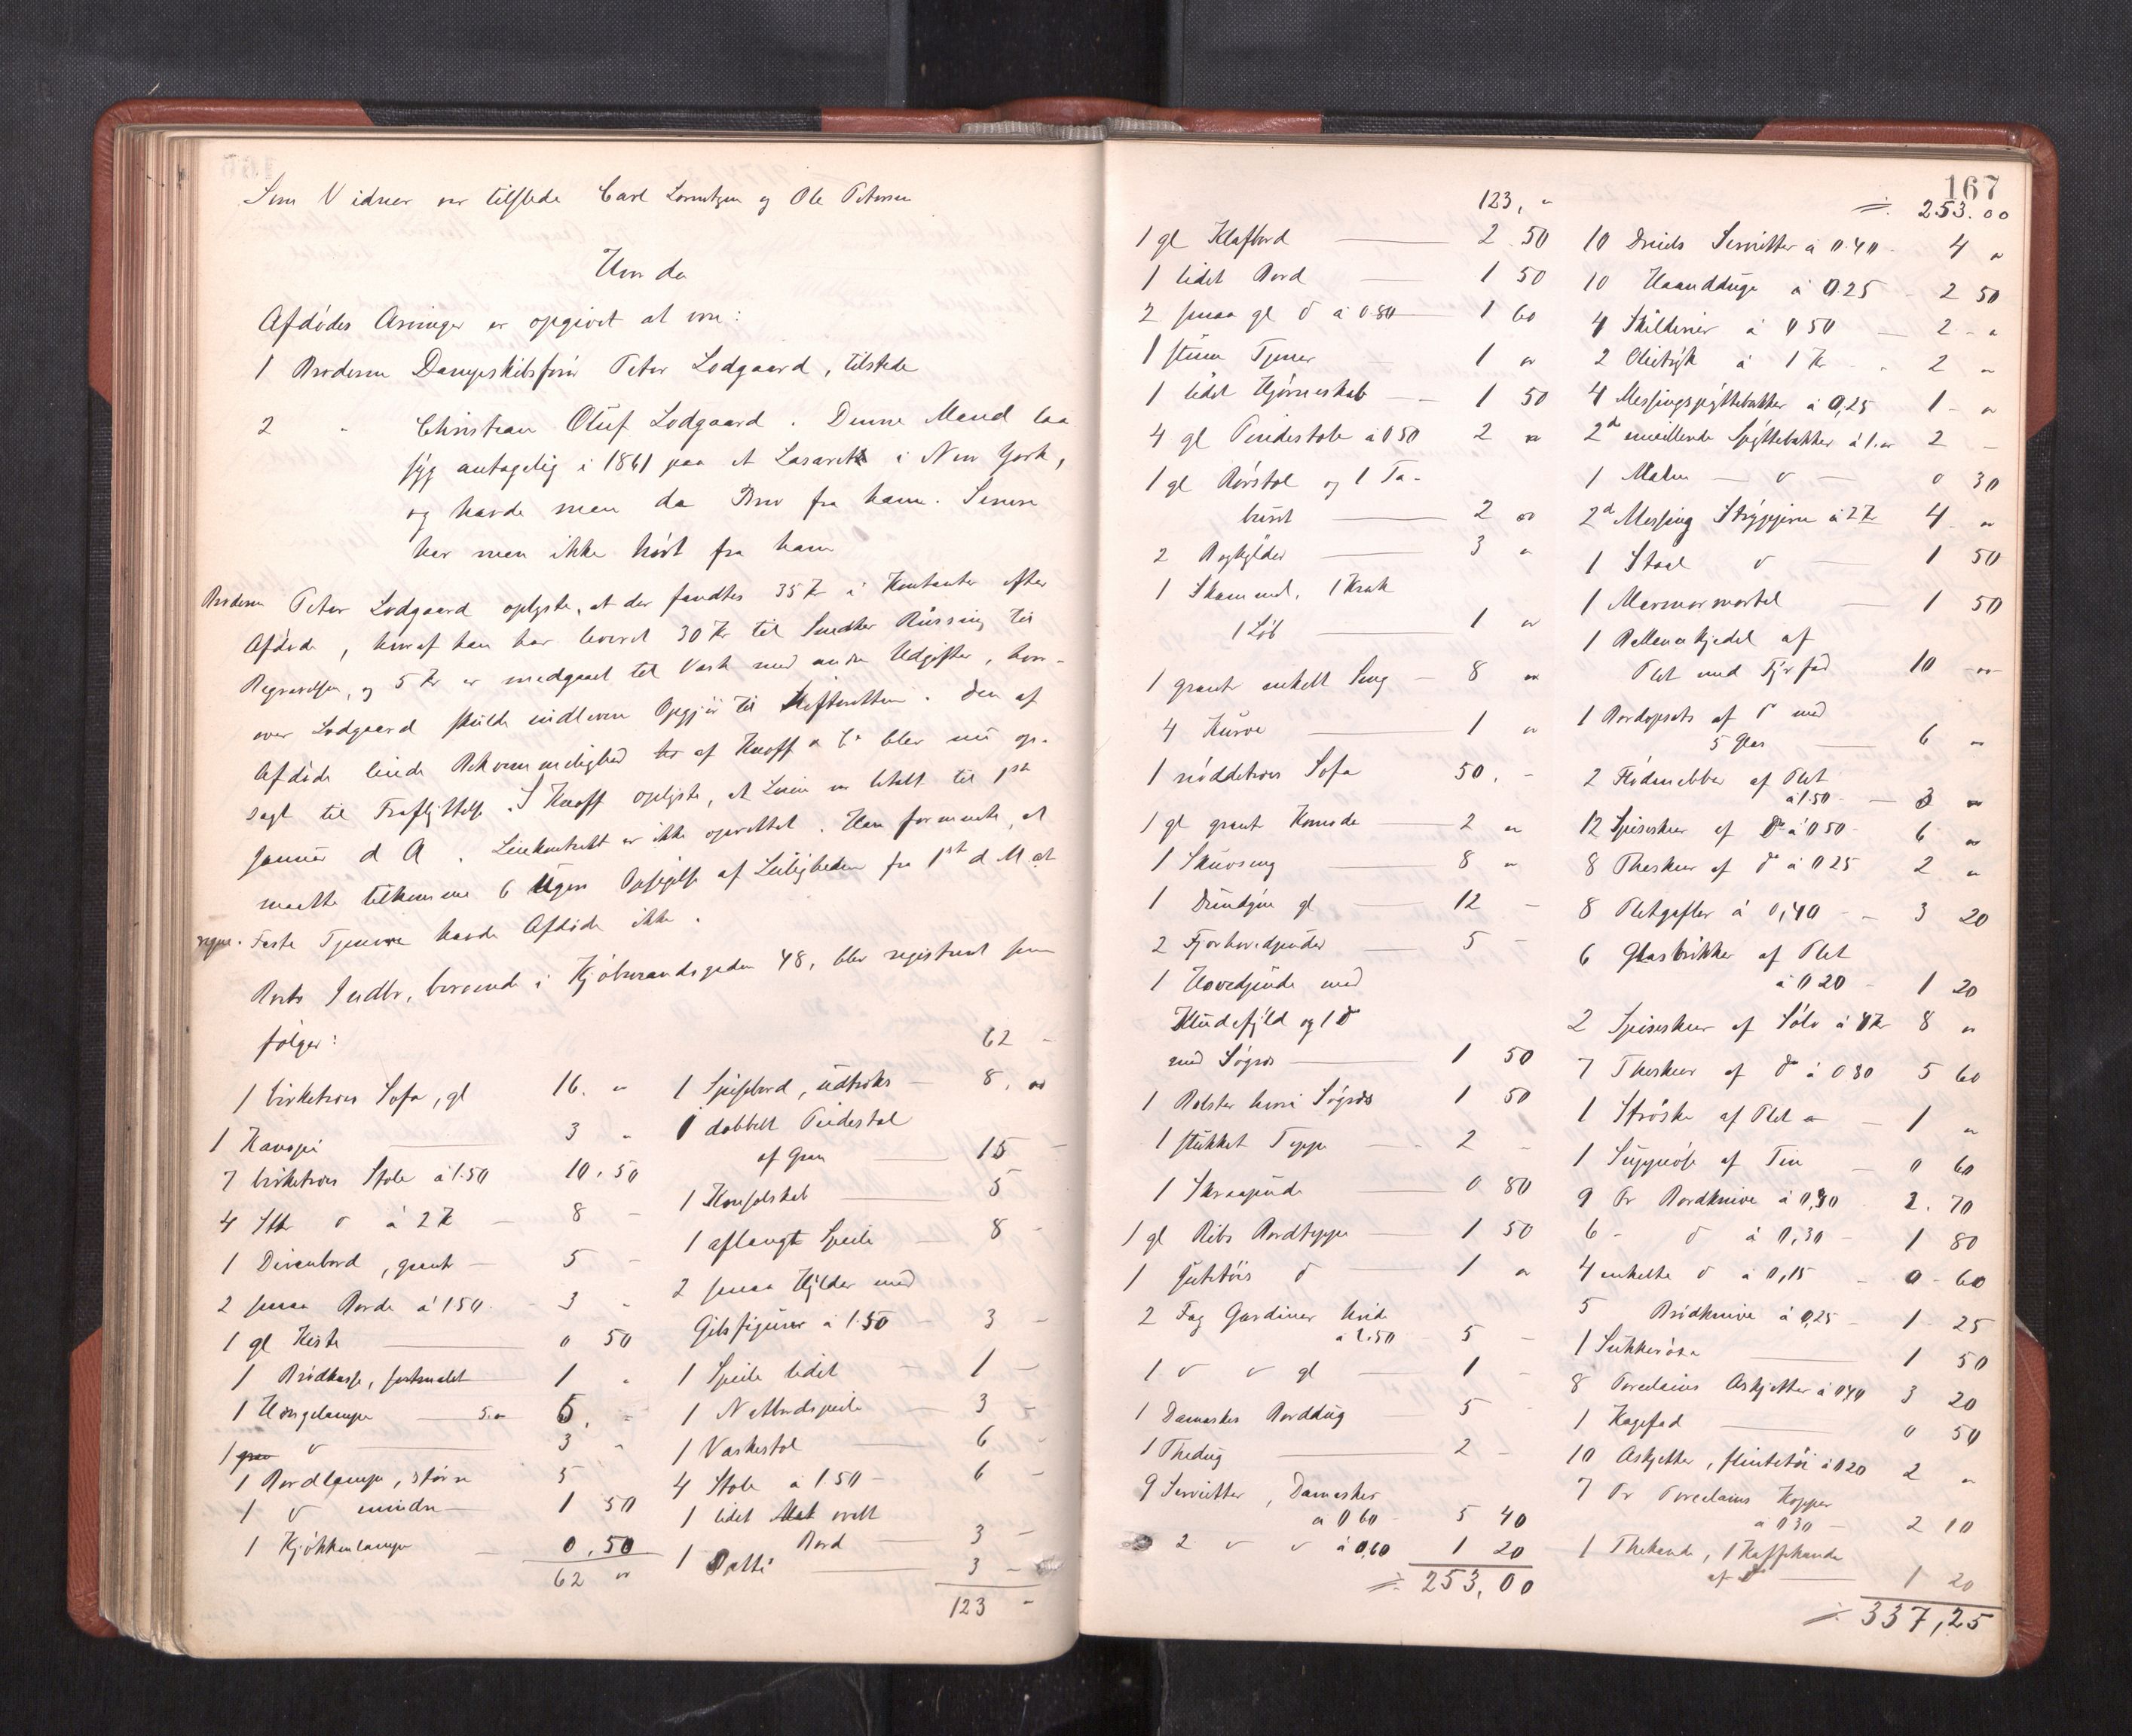 Som Vidner var tilstede Carl Lorentzen og Ole Petersen
Hvor da
Afdødes Arvinger er opgivet at være:
1 Broderen Dampskibsfører Peter Lodgaard, tilstede
2 " Christian Oluf Lodgaard. Denne Mand laa
syg antagelig i 1861 paa et Lasareth i New York,
og havde man da Brev fra ham. Senere
har man ikke hørt fra ham
Broderen Peter Lodgaard oplyste, at der fandtes 35 Kr i Kontanter efter
Afdøde, hvoraf han har leveret 30 Kr til Snedker Büssing til
Begravelsen, og 5 Kr er medgaaet til Vask med andre Udgifter, hvor-
over Lodgaard skulde indlevere Opgjør til Skifteretten. Den af
Afdøde leiede Bekvemmelighed af Knoff blev nu op-
sagt til Fraflyttelse. Knoff oplyste, at Leien er betalt til 1ste
Januar d A. Leiekontrakt er ikke oprettet. Han formente, at
maatte tilkomme 6 Ugers Opsigelse af Leiligheden fra 1st d M at
regne. Faste Tjenere havde Afdøde ikke.
Boets Indbo, beroende i Kjøbmandsgaden 48, blev registreret som
følger:
1 birketræs Sofa, gl 16. "
1 Kanapé 3 "
7 birketræs Stole à 1.50 10.50
4 Stk d à 2 Kr 8 -
1 Divanbord, grant 5 -
2 smaa Borde à 1 50 3 "
1 gl Kiste 0 50
1 Brødkasse, sortmalet 1 "
1 Hængelampe 5. "
1 d 3 "
1 Bordlampe, større 5
1 d mindre 1 50
1 Kjøkkenlampe 0,50
62 "
62 -
1 Spisebord, udtræks 8, "
1 dobbelt Pindestol
af Gran 15 -
1 Konsolskab 5
1 aflangt Speile 8 -
2 smaa Hylder med
Gibsfigurer à 1.50 3 -
1 Speile lidet 1 -
1 Natbordspeile 3 -
1 Vaskestol 6 -
4 Stole a 1 50 6 -
1 lidet ovalt
Bord 3 -
1 Potte 3 -
123 -
167
123, "
1 gl Klafbord 2 50
1 lidet Bord 1 50
2 smaa gl d à 0.80 1 60
1 stum Tjener 1 "
1 lidet Hjørneskab 1 50
4 gl Pindestole à 0 50 2 "
1 gl Rørstol og 1 Ta-
buret 2 "
2 Boghylder 3 "
1 Skammel, 1 Krak
1 Løb 1 "
1 grant enkelt Seng 8 "
4 Kurve 1 "
1 nøddetræs Sofa 50, -
1 gl grant Komode 2 "
1 Skuvseng 8 "
1 Dundyne gl 12 -
2 Fjærhovedpuder 5 -
1 Hovedpude med
Kludefyld og 1 d
med Søgræs 1 50
1 Bolster heri Søgræs 1 50
1 stukket Teppe 2 -
1 Skraapude 0 80
1 gl Ribs Bordteppe 1 50
1 Jutetøis d 1 "
2 Fag Gardiner hvide
à 2.50 5 -
1 d d gl 1 -
1 Damaskes Borddug 5 -
1 Thedug 2 -
9 Servietter, Damaskes
a 0 60 5 40
2 d d à 0,60 1 20
253,00
253.00
10 Dreiels Servietter à 0.40 4 "
10 Haandduge à 0.25 2 50
4 Skilderier à 0 50 2 - "
2 Olietryk à 1 Kr 2 "
4 Messingspyttebakker à 0,25 1 - "
2 Spyttebakker à 1. " 2 -
1 Malm d 0 30
2 Messing Strygejern à 2 Kr 4 "
1 Staal d 1 50
1 Marmormortel 1 50
1 Bollemekjedel af
Plet med Fyrfad 10 "
1 Bordopsats af d med
5 Glas 6 "
2 Flødenebber af Plet
à 1.50 3 "
12 Spiseskeer af d à 0 50 6 "
8 Theskeer af d à 0 25 2 "
8 Pletgafler à 0,40 3 20
6 Glasbrikker af Plet
à 0 20 1 20
2 Spiseskeer af Sølv à 4 Kr 8 "
7 Theskeer af d à 0 80 5 60
1 Strøske af Plet 1 "
1 Suppeøse af Tin 0 60
9 Pr Bordknive à 0,30 2.70
6 - d à 0,30 1 80
4 enkelte d à 0,15 0 - 60
5 Brødknive à 0,25 1 25
1 Sukkerøxe 1 50
8 Porcelains Askjetter à 0,40 3 20
1 Kagefad 0 50
10 Askjetter, flintetøi à 0 20 2 "
7 Pr Porcelains Kopper
a 0 30 2 10
1 Thekande, 1 Kaffekande
af d 1 20
337,25